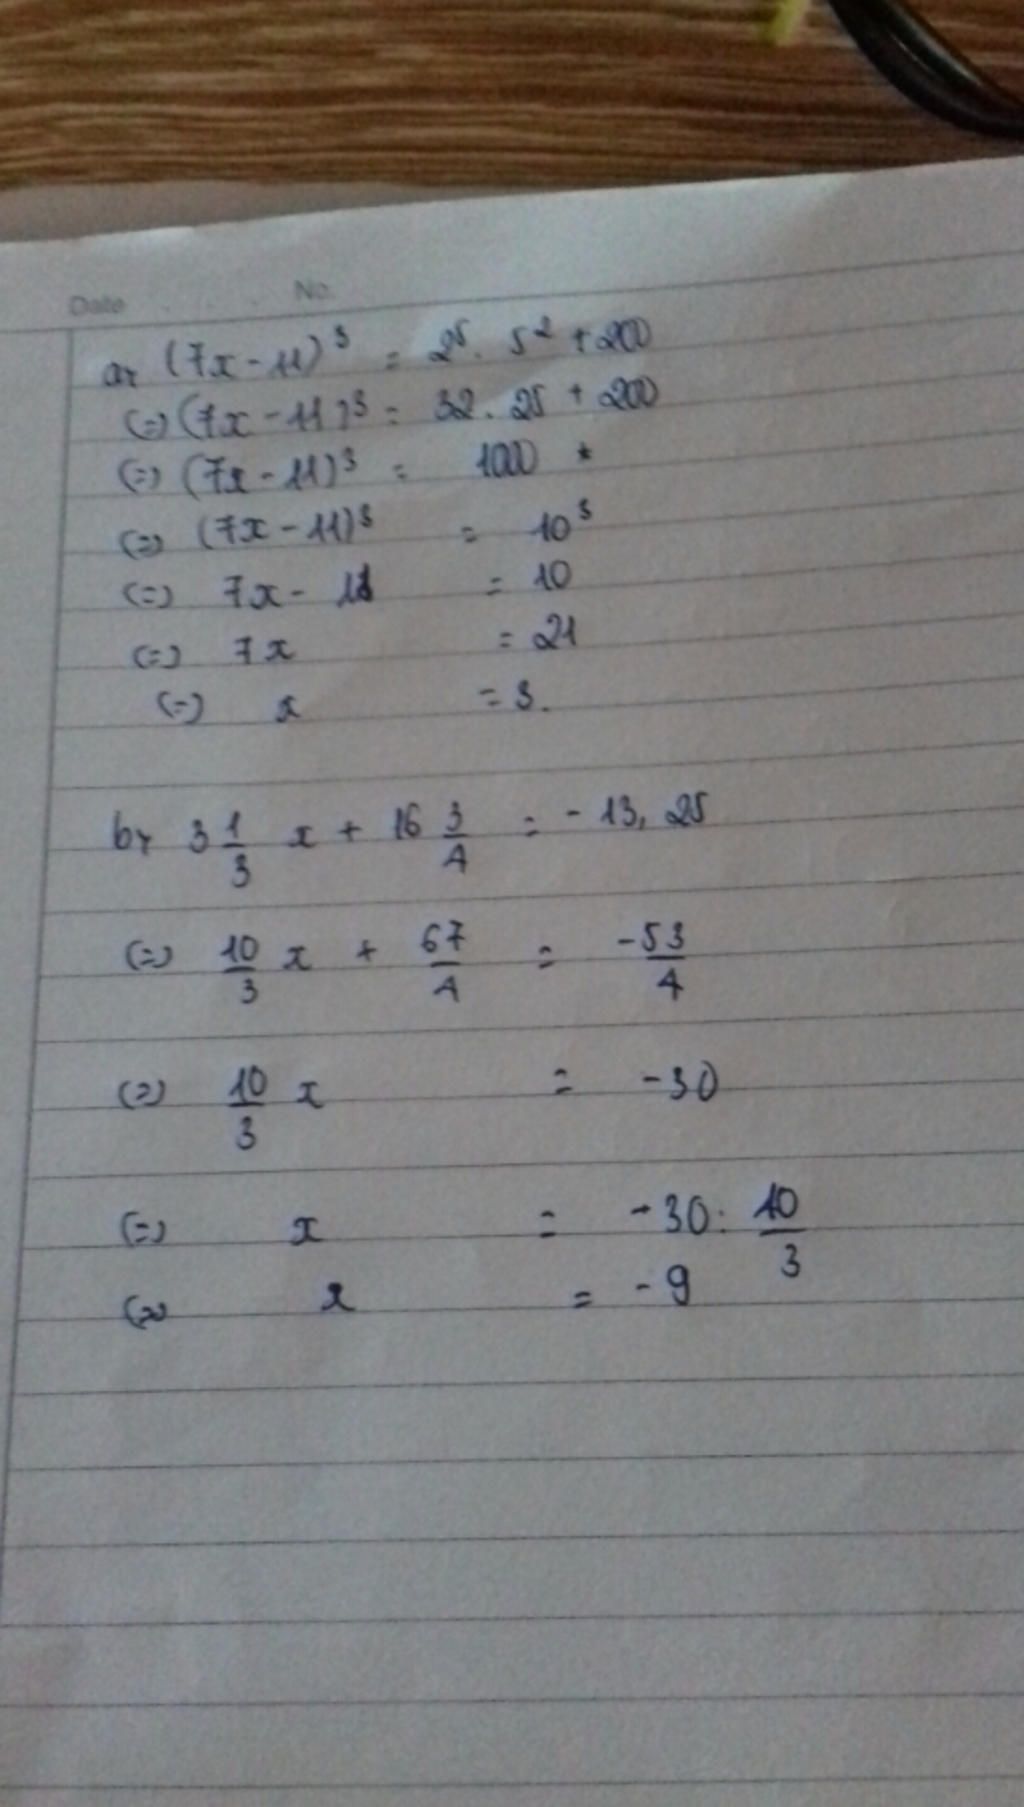 Date . . . . No.
a, (7x - 11)³ = 2⁵. 5² + 200
(=) (7x - 11)³ = 32. 25 + 200
(=) (7x - 11)³ = 1000 *
(=) (7x - 11)³ = 10³
(=) 7x - 11 = 10
(=) 7x = 21
(=) x = 3.
b, 3 1/3 x + 16 3/4 = - 13, 25
(=) 10/3 x + 67/4 = -53/4
(=) 10/3 x = -30
(=) x = -30 : 10/3
(=) x = -9